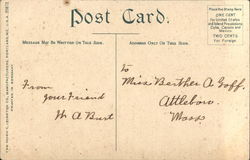 Post Card.
MESSAGE MAY BE WRITTEN ON THIS SIDE.
ADDRESS ONLY ON THIS SIDE.
Place the Stamp here
ONE CENT
for United States
and Island Possessions
Cuba, Canada and
Mexico
TWO CENTS
For Foreign
From
your Friend
W. A Burt
To
Miss Berther A. Goff.
Attleboro.
Mass.